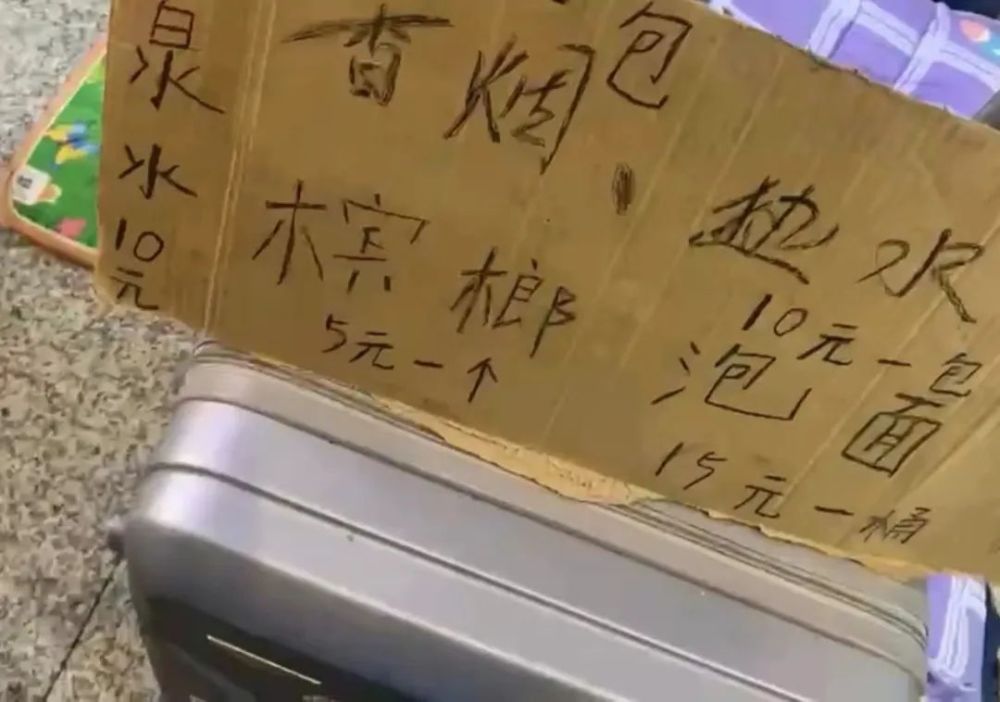 泉水10元
香烟 包
槟榔
5元一个
热水
10元一包
泡面
15元一桶